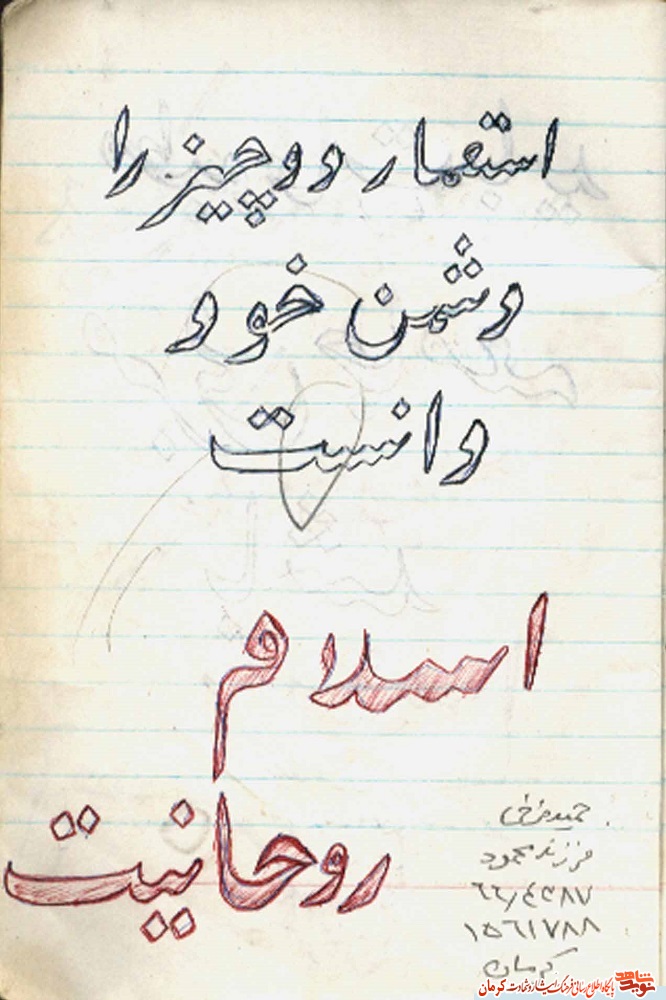 استعمار دو چیز را
دشمن خود
دانست
اسلام
روحانیت
فرزند محمود
۱۵۶۱۷۸۸
کرمان
نوید شاهد پایگاه اطلاع رسانی فرهنگ ایثار و شهادت کرمان